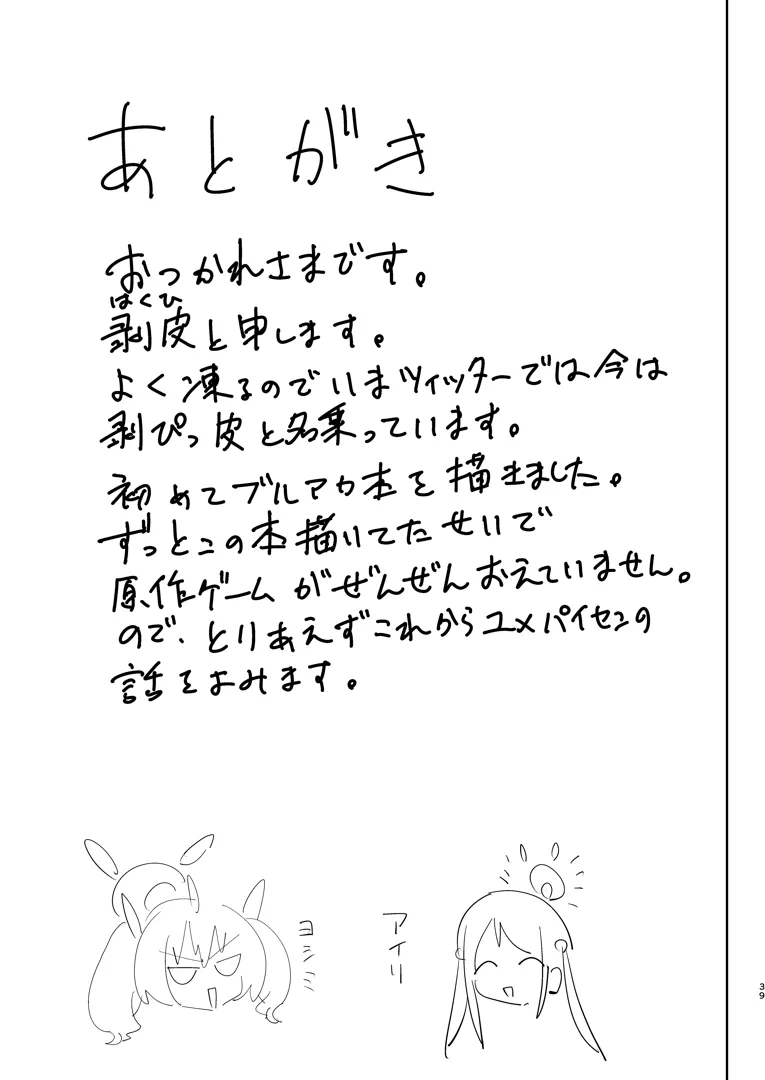 あとがき
おつかれさまです。
はくひ
剥皮と申します。
よく凍るのでいまツィッターでは今は
剥ぴっ皮と名乗っています。
初めてブルアカ本を描きました。
ずっとこの本描いてたせいで
原作ゲームがぜんぜんおえていません。
ので、とりあえずこれからユメパイセンの
話をよみます。
ヨシミ
アイリ
39